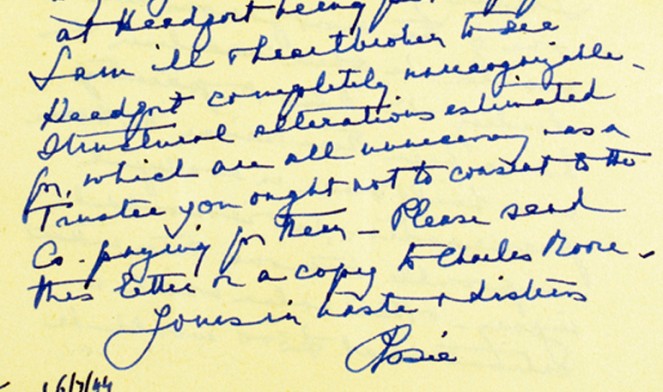 at Headfort being
I am ill & heartbroken to see
Headfort completely unrecognizable -
Structural alterations estimated
for, which are all unnecessary - as a
Trustee you ought not to consent to the
Co - paying for them - Please send
this letter or a copy to Charles Moore -
Yours in haste & distress
Rosie
6/7/44